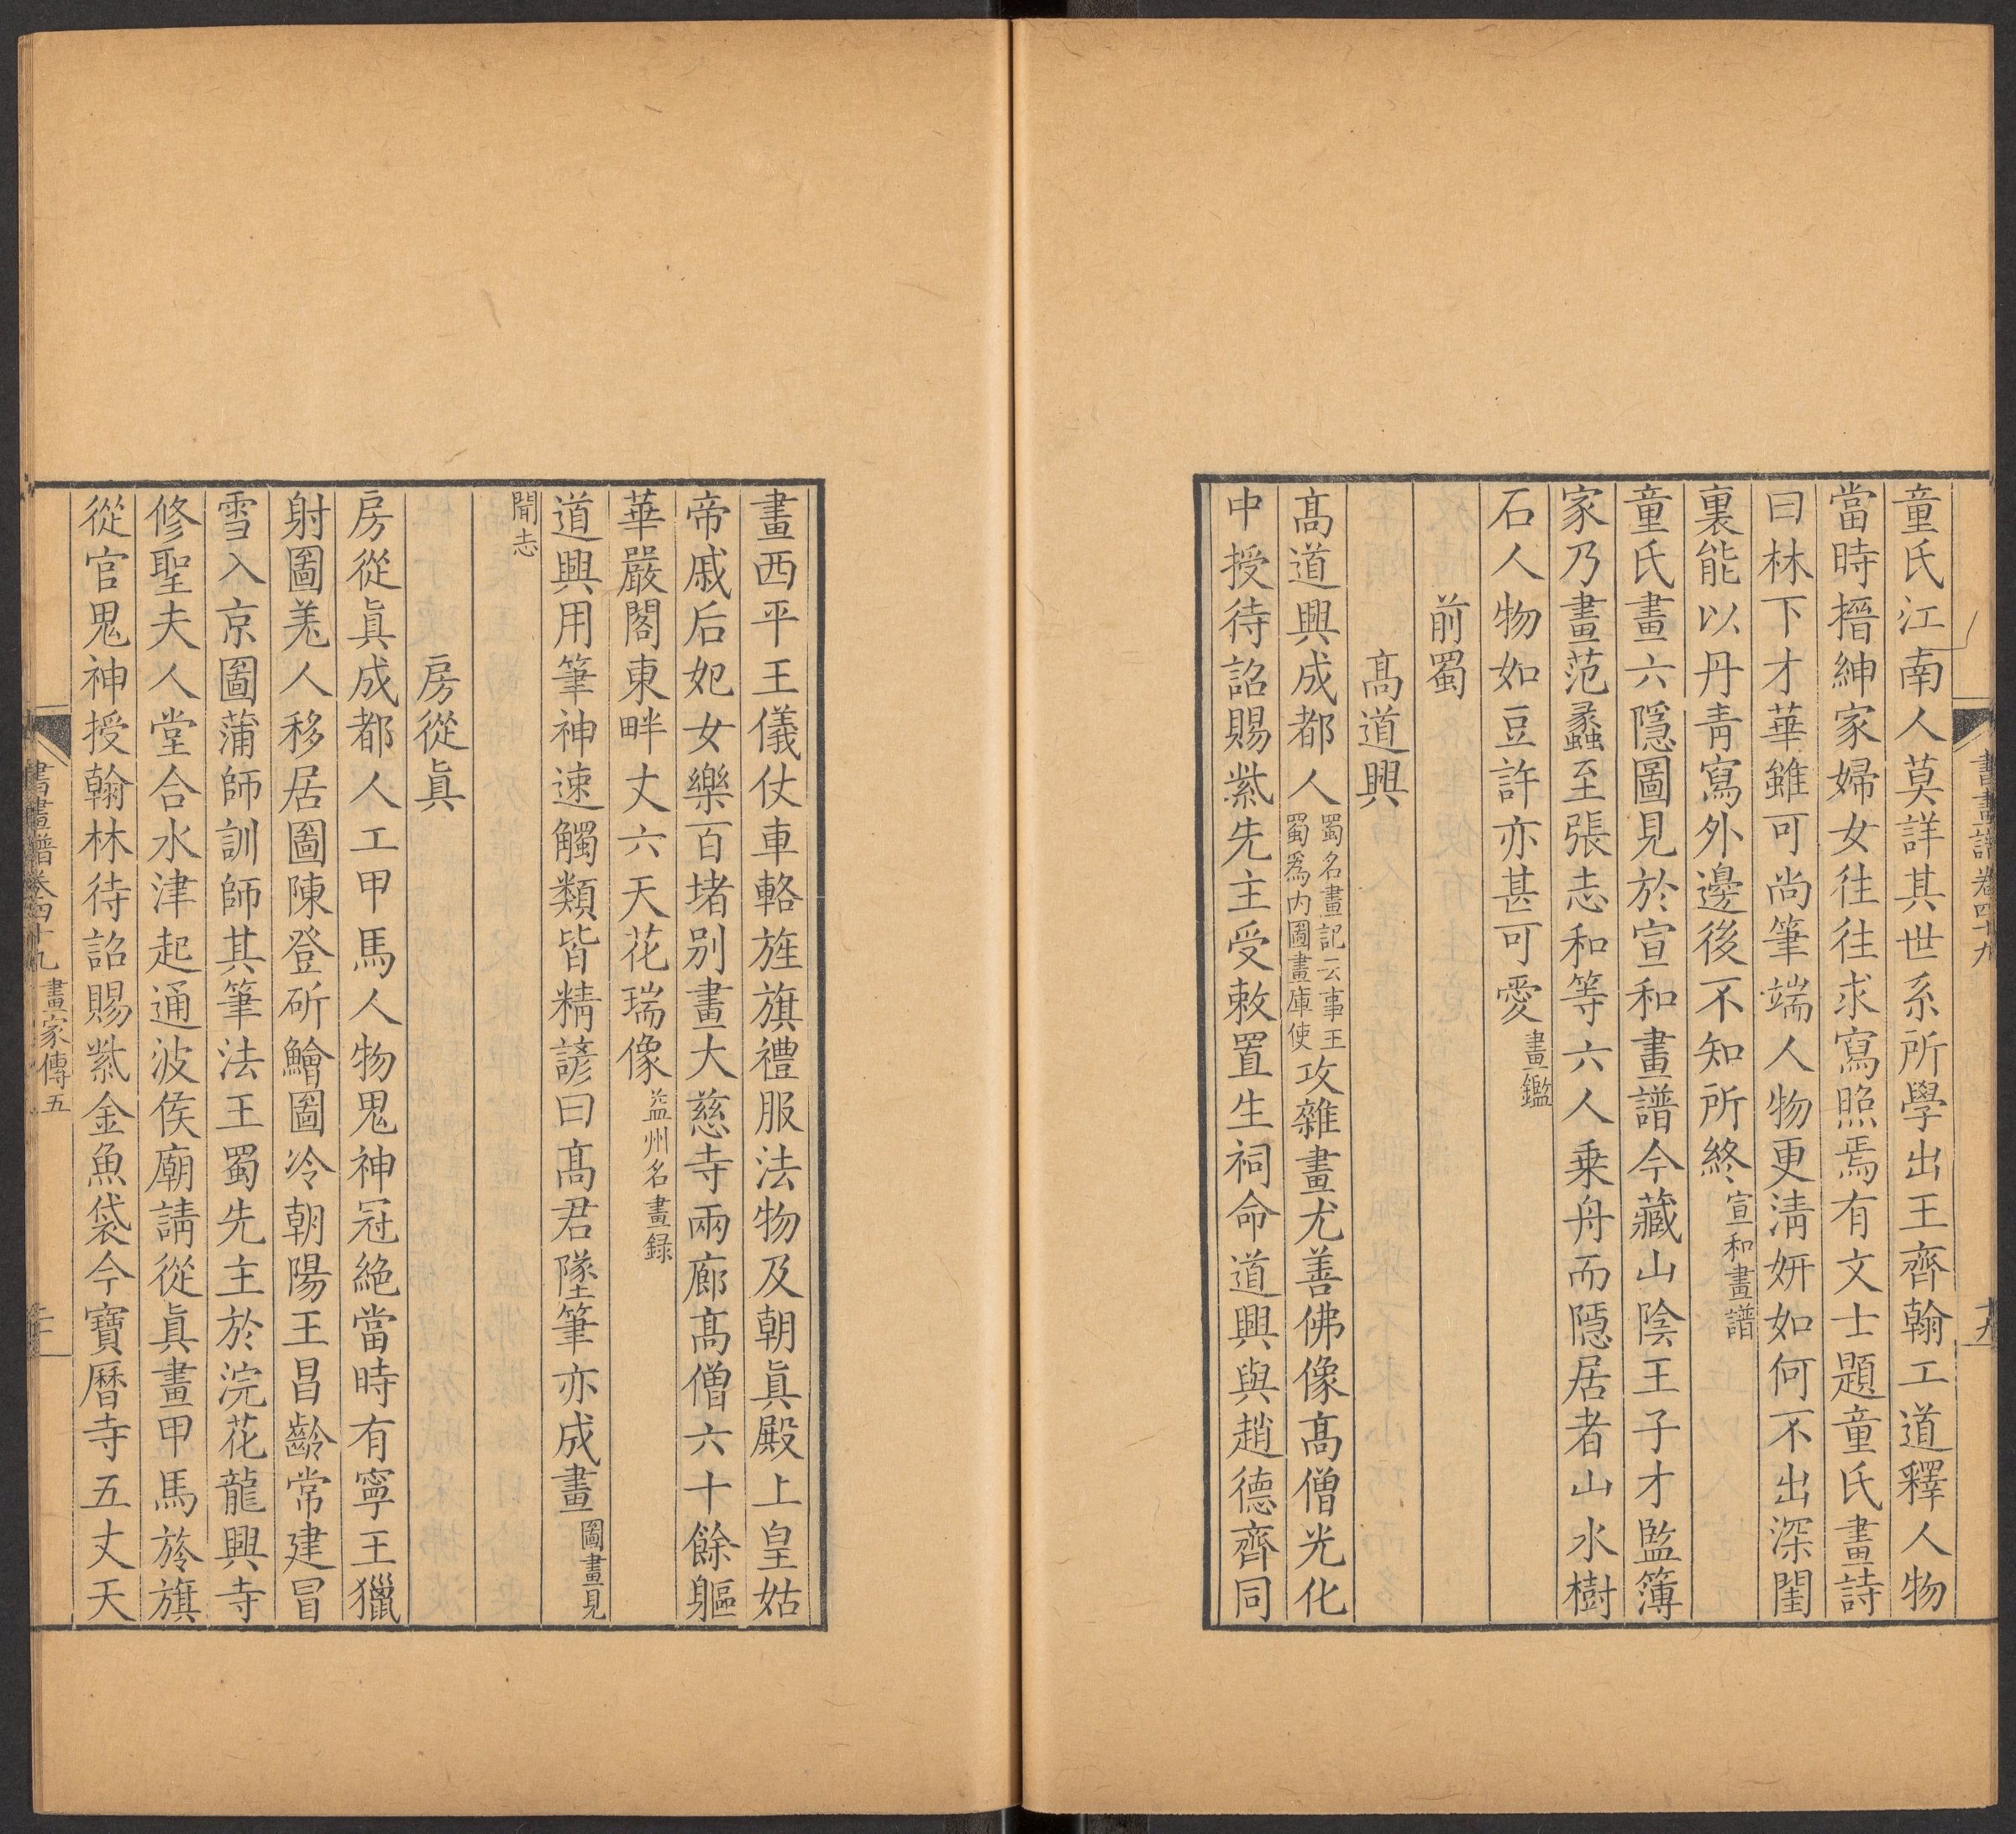 書畫譜卷四十九
十九
童氏江南人莫詳其世系所學出王齊翰工道釋人物
當時搢紳家婦女往往求寫照焉有文士題童氏畫詩
曰林下才華雖可尚筆端人物更淸妍如何不出深閨
裏能以丹靑寫外邊後不知所終宣和畫譜
童氏畫六隱圖見於宣和畫譜今藏山陰王子才監簿
家乃畫范蠡至張志和等六人乗舟而隱居者山水樹
石人物如豆許亦甚可愛畫鑑
前蜀
髙道興
髙道興成都人蜀名畫記云事王蜀爲内圖畫庫使攻雜畫尤善佛像髙僧光化
中授待詔賜紫先主受敕置生祠命道興與趙德齊同
畫西平王儀仗車輅旌旗禮服法物及朝眞殿上皇姑
帝戚后妃女樂百堵别畫大慈寺兩廊髙僧六十餘軀
華嚴閣東畔丈六天花瑞像益州名畫録
道興用筆神速觸類皆精諺曰髙君墜筆亦成畫圖畫見
聞志
房從眞
房從眞成都人工甲馬人物鬼神冠絶當時有寧王獵
射圖羌人移居圖陳登斫鱠圖冷朝陽王昌齡常建冒
雪入京圖蒲師訓師其筆法王蜀先主於浣花龍興寺
修聖夫人堂合水津起通波侯廟請從眞畫甲馬旍旗
從官鬼神授翰林待詔賜紫金魚袋今寶曆寺五丈天
書畫譜卷四十九 畫家傳五